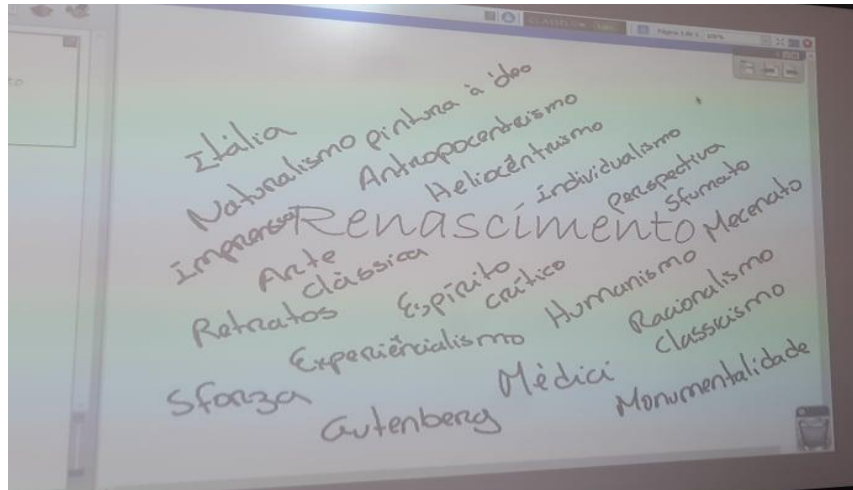 CLASSFLOW
100%
Itália
Naturalismo
pintura à óleo
Antropocentrismo
Heliocêntrismo
Individualismo
Perspectiva
Sfumato
Imprensa
Renascimento
Mecenato
Arte
clàssica
Espírito
crítico
Humanismo
Racionalismo
Classicismo
Retratos
Experiêncialismo
Sforza
Médici
Monumentalidade
Gutenberg